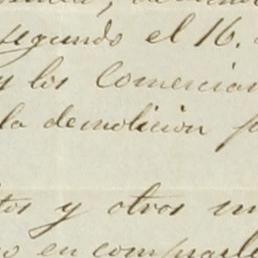 segundo el 16.
y los comercian
la demolicion
tos y otros
en comprarle